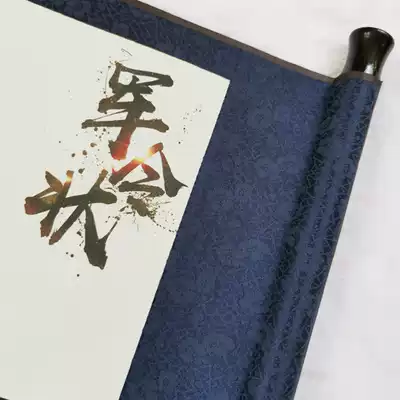 军令状